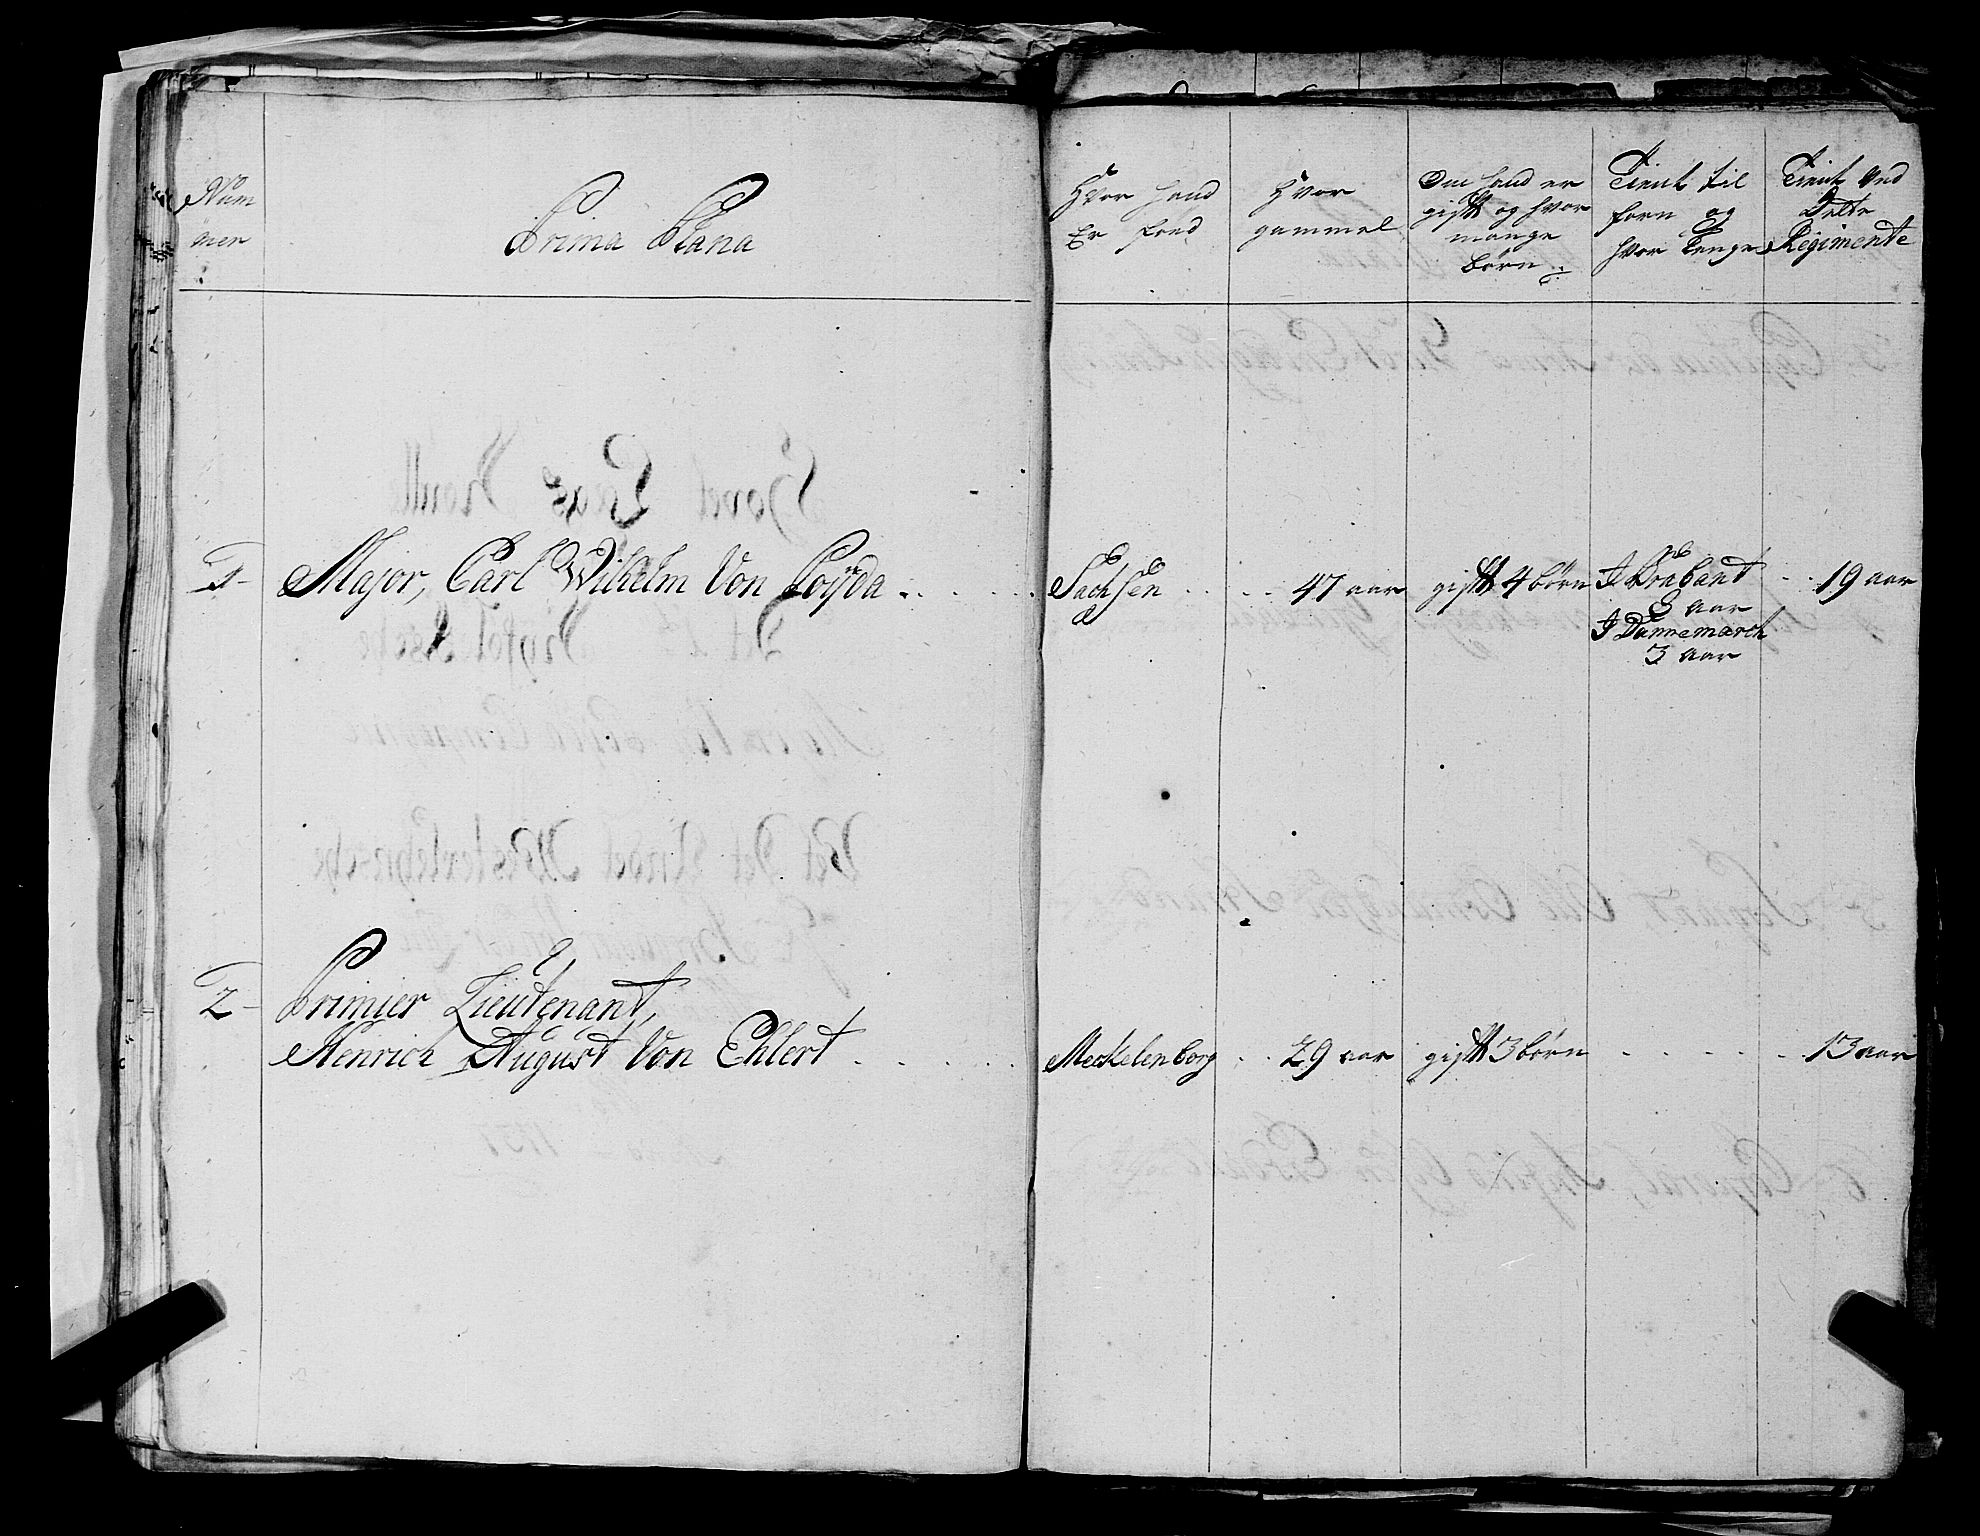 Num
mer
Prima Plana
Hvor hand
Er född
Hvor
gammel
Om hand er
gift og hvor
mange
börn
Tient til
forn og
hvor Lenge
Tient Ved
Dette
Regimente
1 Major, Carl Wilhelm Von Coÿda
Sachsen 47 aar gift 4 börn J Brabant 19 aar
8 aar
J Dannemarch
3 aar
2 Primier Lieutenant,
Henrich August Von Ehlert
Meckelenborg 29 aar gift 3 börn 13 aar